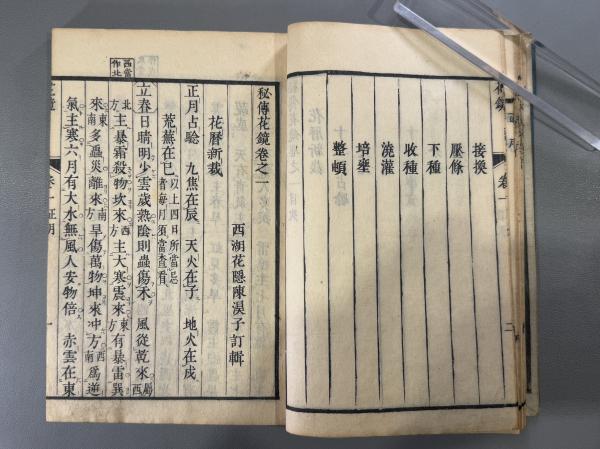 接換
壓條
下種
收種
澆灌
培壅
整頓
秘傳花鏡卷之一
西湖花隱陳淏子訂輯
花曆新裁
正月占驗 九焦在辰 天火在子 地火在戌
荒蕪在巳 以上四日所當忌者每月須當查看
立春日晴明少雲歲熱陰則蟲傷禾 風從乾來屬西
北方主暴霜殺物坎來西方主大寒震來東方有暴雷巽
來東南多蟲災離來南方旱傷萬物坤來冲方西南為逆
氣主寒六月有大水無風人安物倍 赤雲在東
西當作北